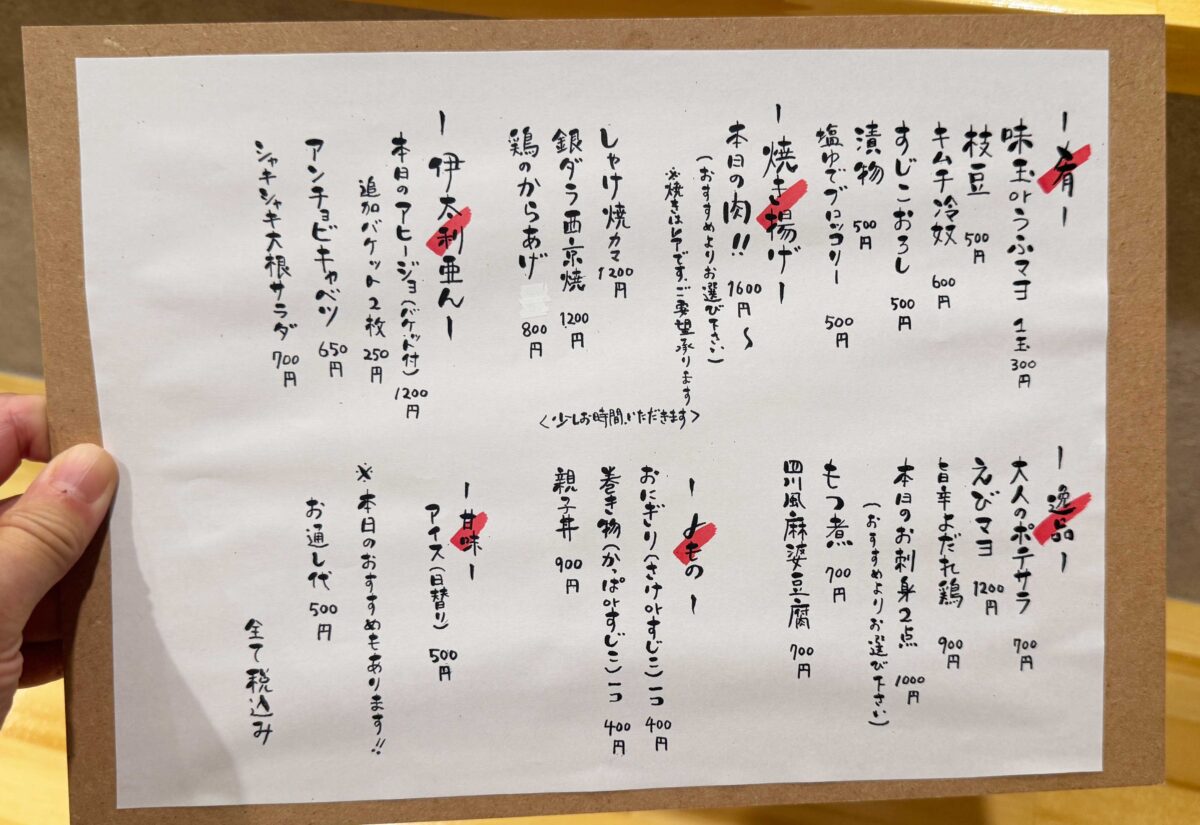 ー肴ー
味玉orうふマヨ 1玉 300円
枝豆 500円
キムチ冷奴 600円
すじこおろし 500円
漬物 500円
塩ゆでブロッコリー 500円
ー焼き揚げー
本日の肉!! 1600円〜
(おすすめよりお選び下さい)
※焼きはレアです。ご要望承ります
<少しお時間いただきます>
しゃけ焼カマ 1200円
銀ダラ西京焼 1200円
鶏のからあげ 800円
ー伊太利亜んー
本日のアヒージョ(バケット付) 1200円
追加バケット2枚 250円
アンチョビキャベツ 650円
シャキシャキ大根サラダ 700円
ー逸品ー
大人のポテサラ 700円
えびマヨ 1200円
旨辛よだれ鶏 900円
本日のお刺身2点 1000円
(おすすめよりお選び下さい)
もつ煮 700円
四川風麻婆豆腐 700円
ー〆ものー
おにぎり(さけorすじこ)一コ 400円
巻き物(かっぱorすじこ)一コ 400円
親子丼 900円
ー甘味ー
アイス(日替り) 500円
※本日のおすすめもあります!!
お通し代 500円
全て税込み